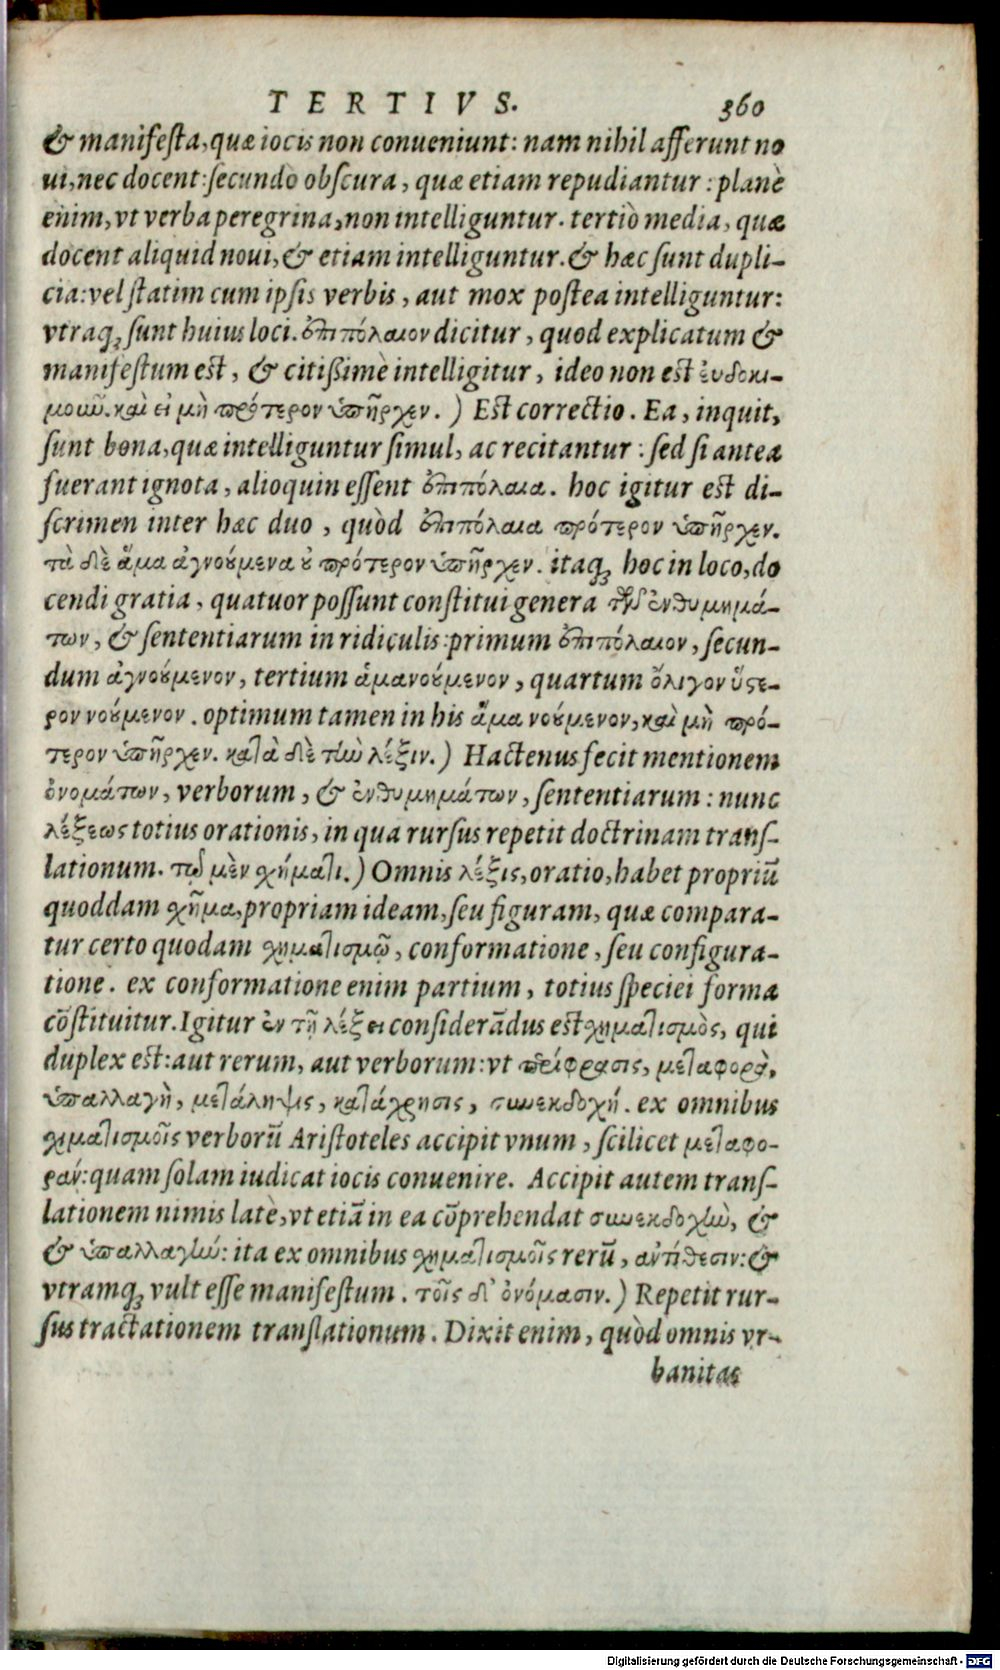 TERTIVS. 360
& manifesta, quæ iocis non conueniunt: nam nihil afferunt no
ui, nec docent: secundò obscura, quæ etiam repudiantur: planè
enim, vt verba peregrina, non intelliguntur. tertiò media, quæ
docent aliquid noui, & etiam intelliguntur. & hæc sunt dupli-
cia: vel statim cum ipsis verbis, aut mox postea intelliguntur:
vtraq; sunt huius loci. ἐπιπόλαιον dicitur, quod explicatum &
manifestum est, & citißimè intelligitur, ideo non est ἐυδοκι-
μοιωῦ. καὶ εἰ μὴ πρότερον ὑπῆρχεν.) Est correctio. Ea, inquit,
sunt bona, quæ intelliguntur simul, ac recitantur: sed si antea
fuerant ignota, alioquin essent ἐπιπόλαια. hoc igitur est di-
scrimen inter hæc duo, quòd ἐπιπόλαια πρότερον ὑπῆρχεν.
τὰ δὲ ἅμα ἀγνούμενα ὐ πρότερον ὑπῆρχεν. itaq; hoc in loco, do
cendi gratia, quatuor possunt constitui genera τῶν ἐνθυμημά-
των, & sententiarum in ridiculis: primum ἐπιπόλαιον, secun-
dum ἀγνούμενον, tertium ἁμανούμενον, quartum ὄλιγον ὕστε-
ρον νούμενον. optimum tamen in his ἅμα νούμενον, καὶ μὴ πρό-
τερον ὑπῆρχεν. κατὰ δὲ τὴν λέξιν.) Hactenus fecit mentionem
ὀνομάτων, verborum, & ἐνθυμημάτων, sententiarum: nunc
λέξεως totius orationis, in qua rursus repetit doctrinam trans-
lationum. τῷ μὲν σχήματι.) Omnis λέξις, oratio, habet propriũ
quoddam σχῆμα, propriam ideam, seu figuram, quæ compara-
tur certo quodam σχηματισμῷ, conformatione, seu configura-
tione. ex conformatione enim partium, totius speciei forma
cõstituitur. Igitur ἐν τῇ λέξει considerãdus est σχηματισμὸς, qui
duplex est: aut rerum, aut verborum: vt περίφρασις, μεταφορὰ,
ὑπαλλαγὴ, μετάληψις, κατάχρησις, συνεκδοχή. ex omnibus
σχιματισμοῖς verborũ Aristoteles accipit vnum, scilicet μεταφο-
ράν: quam solam iudicat iocis conuenire. Accipit autem trans-
lationem nimis latè, vt etiã in ea cõprehendat συνεκδοχὴν, &
& ὑπαλλαγὴν: ita ex omnibus σχηματισμοῖς rerũ, ἀντίθεσιν: &
vtramq; vult esse manifestum. τοῖς δ' ὀνόμασιν.) Repetit rur-
sus tractationem translationum. Dixit enim, quòd omnis vr-
banitas
Digitalisierung gefördert durch die Deutsche Forschungsgemeinschaft - DFG